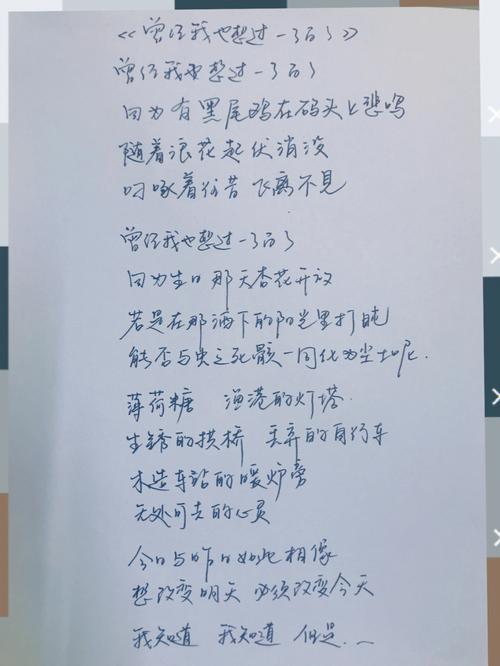 《曾经我也想过一了百了》
曾经我也想过一了百了
因为有黑尾鸥在码头上悲鸣
随着浪花起伏消没
叼啄着往昔飞离不见
曾经我也想过一了百了
因为生日那天杏花开放
若是在那洒下的阳光里打盹
能否与虫之死骸一同化为尘土呢.
薄荷糖 渔港的灯塔.
生锈的拱桥 丢弃的自行车
木造车站的暖炉旁
无处可去的心灵
今日与昨日如此相像
想改变明天 必须改变今天
我知道 我知道 但是...